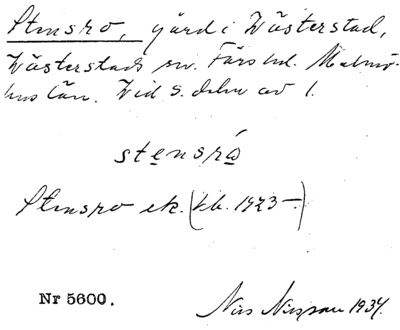 Stensro, gård i Wästerstad,
Wästerstads sn. Färs hd. Malmö-
hus län. Vid s. delen av l.
stensrå
Stensro ek. (kb. 1923–)
Nr 5600.
Nils Nilsson 1934.